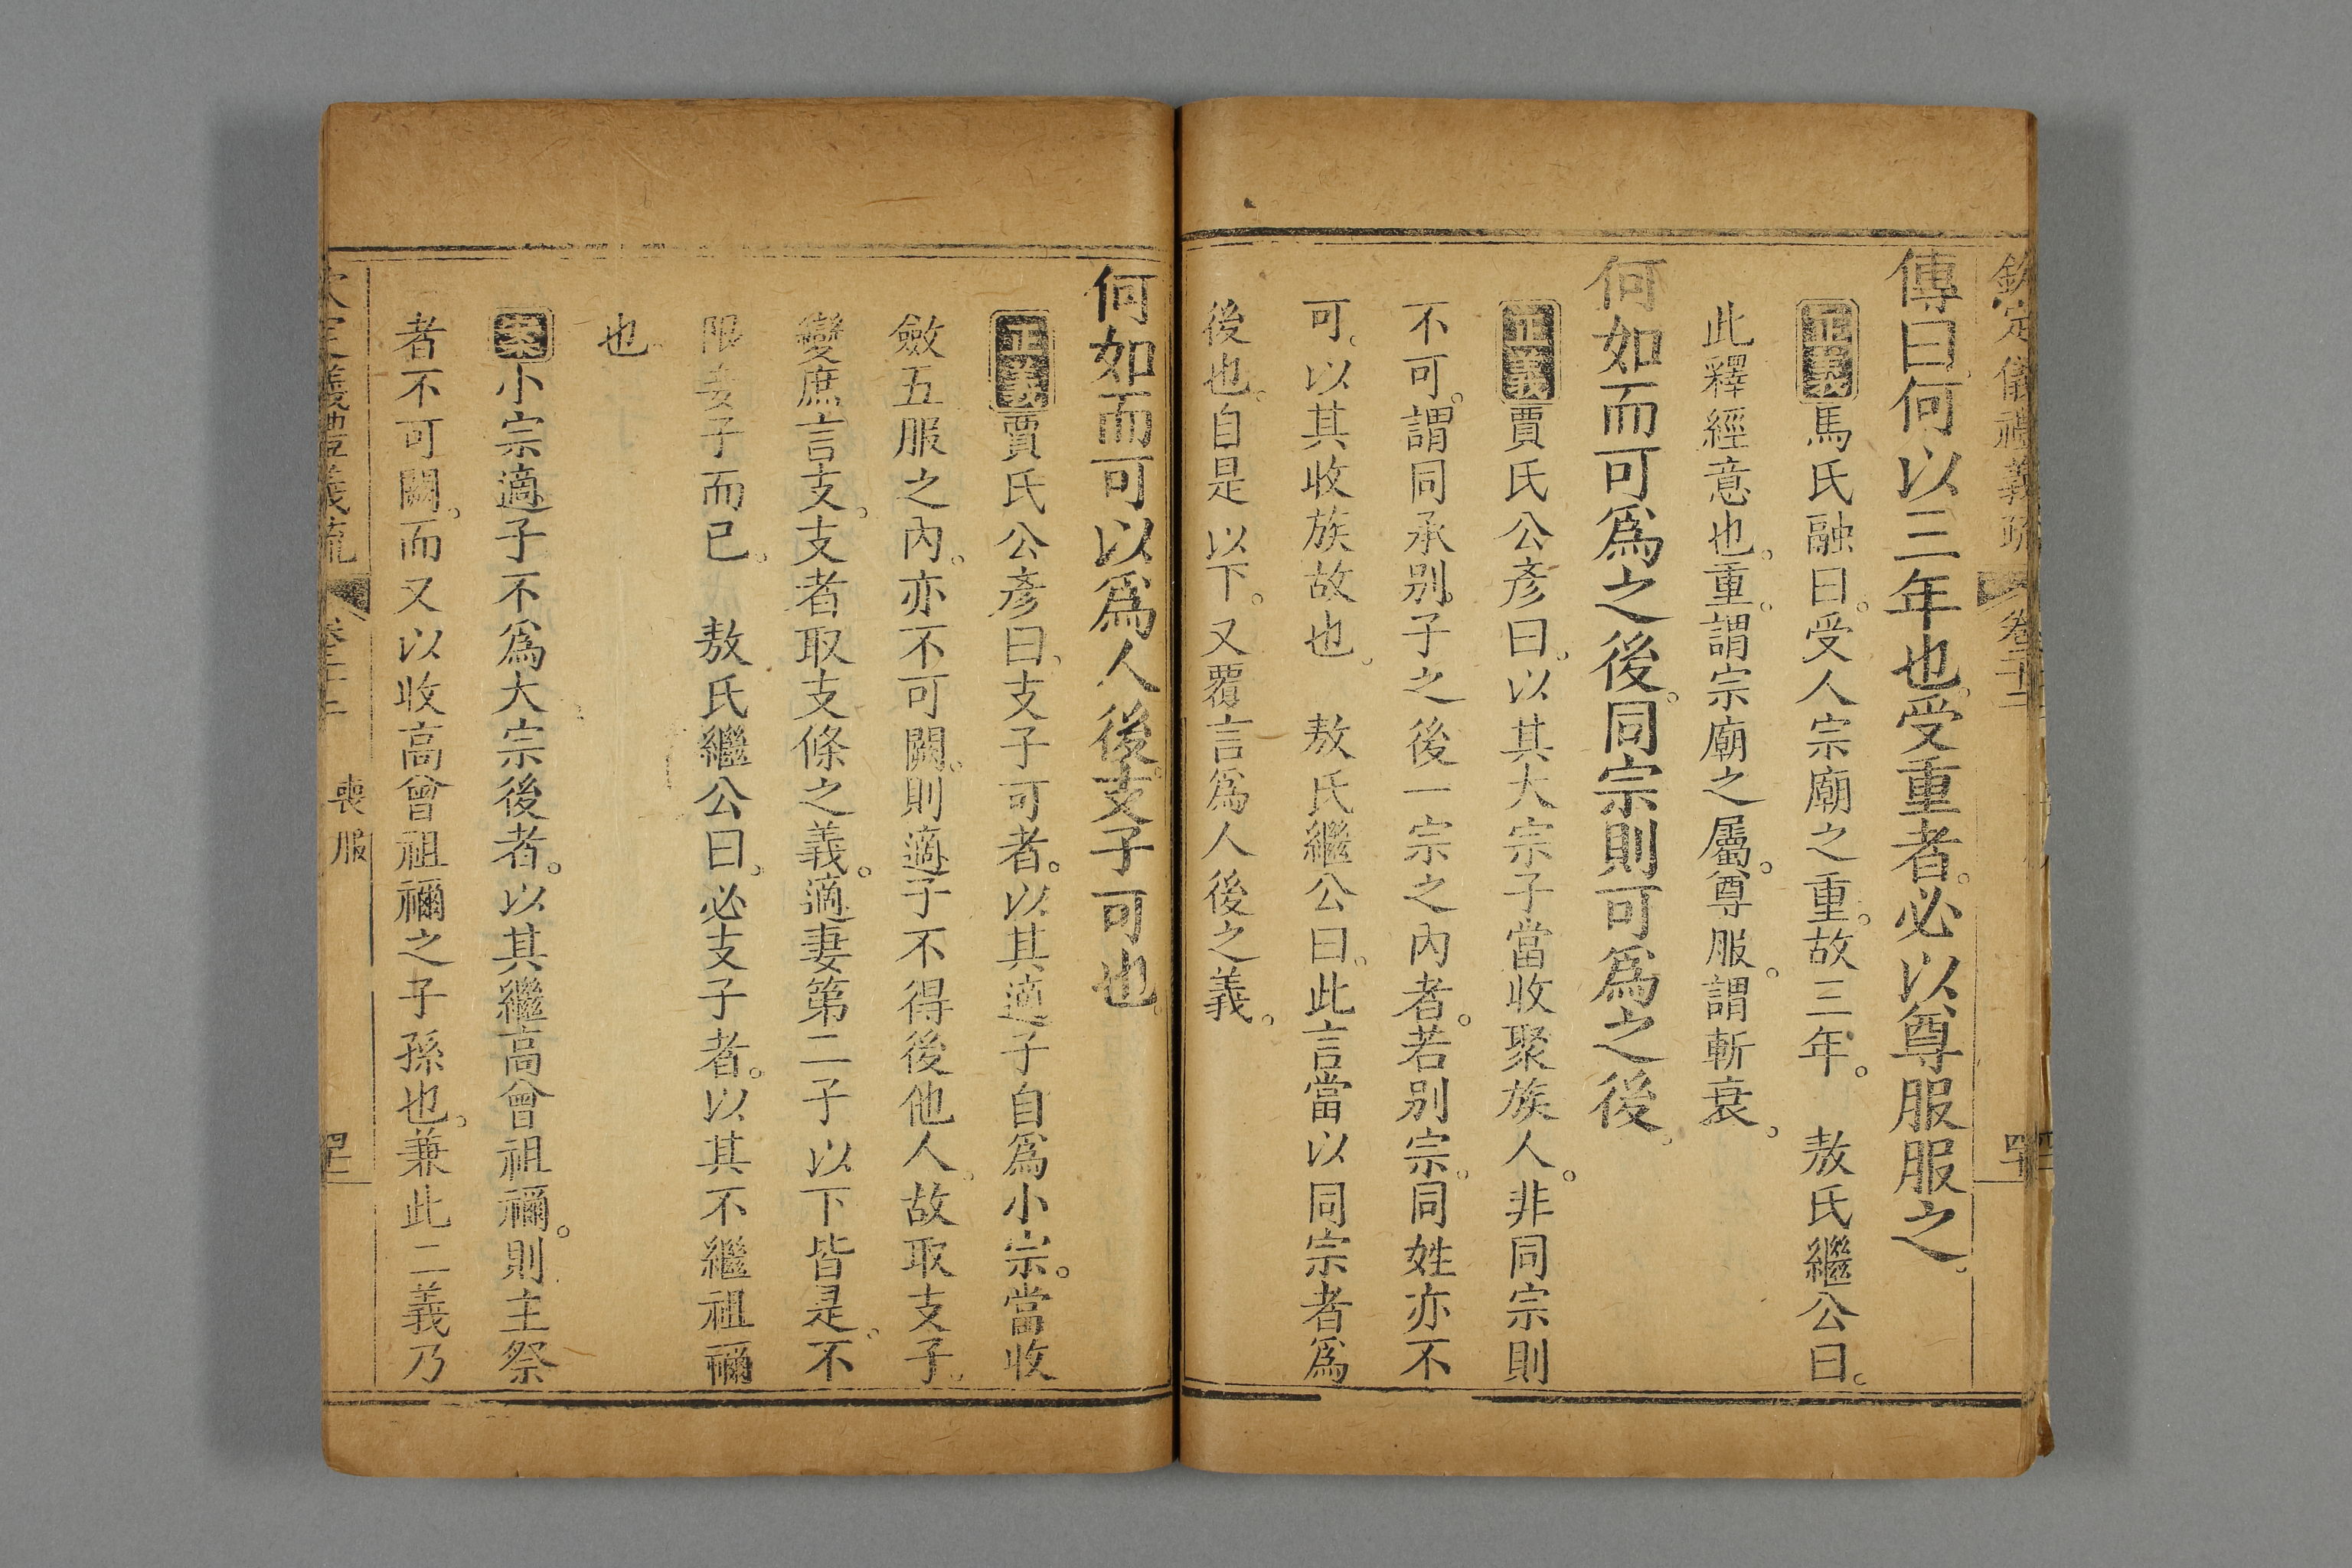 欽定儀禮義疏 卷二十二 四十
傳曰何以三年也。受重者。必以尊服服之。
正義馬氏融曰。受人宗廟之重。故三年。 敖氏繼公曰。
此釋經意也。重。謂宗廟之屬。尊服。謂斬衰。
何如而可爲之後。同宗則可爲之後。
正義賈氏公彥曰。以其大宗子當收聚族人。非同宗則
不可。謂同承别。子之後一宗之內者。若别宗。同姓亦不
可。以其收族故也。 敖氏繼公曰。此言當以同宗者爲
後也。自是以下。又覆言爲人後之義。
何如而可以爲人後。支子可也。
正義賈氏公彥曰。支子可者。以其適子自爲小宗。當收
斂五服之內。亦不可闕。則適子不得後他人。故取支子。
變庶言支。支者取支條之義。適妻第二子以下皆是。不
限妾子而已。 敖氏繼公曰。必支子者。以其不繼祖禰
也。
案小宗適子不爲大宗後者。以其繼高曾祖禰。則主祭
者不可闕。而又以收高曾祖禰之子孫也。兼此二義乃
喪服